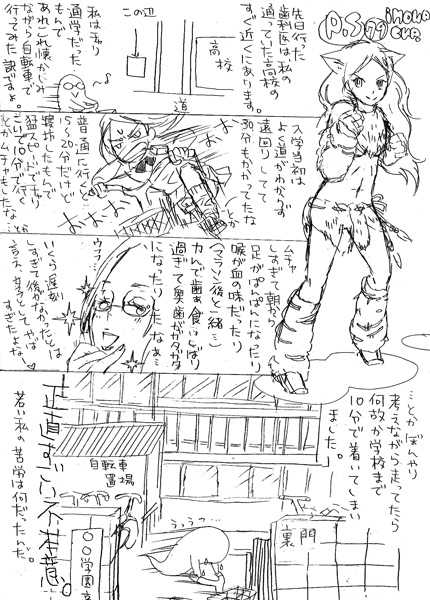 P.S 79
先日行った
歯科医は私の
通っていた高校の
すぐ近くにあります。
この辺
高校
道
私はチャリ
通学だった
もんで
あれこれ懐かしみ
ながら自転車で
行ってみた訳ですよ。
入学当初は
よく道がわからず
遠回りしてて
30分もかかってたな
とか
普通に行くと
15〜20分だけど
寝坊したもんで
猛スピードでチャリ
こいで10分で行く
とかムチャもしたな
…とか
ムチャ
しすぎて朝から
足がぱんぱんになったり
喉が血の味だったり
(マラソン後と一緒…)
力んで歯ぁ食いしばり
過ぎて奥歯がガタガタ
になったりしたなぁ…
ウフ…
いくら遅刻
しすぎて後がなかったとは
言え、ムチャして、やは
すぎたよな
…とかぼんやり
考えながら走ってたら
何故か学校まで
10分で着いてしまい
ました。
裏門
ううう…
自転車
置場
〇〇学園高
正直すごい不甲意。
若い私の苦労は何だったんだ。